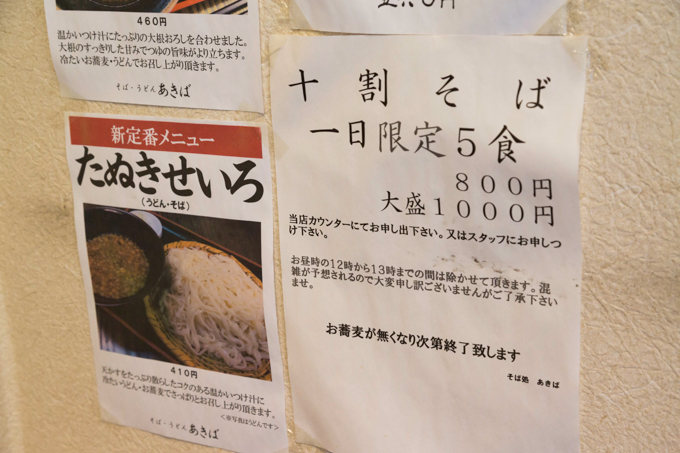 460円
温かいつけ汁にたっぷりの大根おろしを合わせました。
大根のすっきりした甘みでつゆの旨味がより立ちます。
冷たいお蕎麦・うどんでお召し上がり頂きます。
そば・うどん あきば
新定番メニュー
たぬきせいろ
(うどん・そば)
410円
天かすをたっぷり散らしたコクのある温かいつけ汁に
冷たいうどん・お蕎麦でさっぱりとお召し上がり頂きます。
<※写真はうどんです>
そば・うどん あきば
十割そば
一日限定5食
800円
大盛1000円
当店カウンターにてお申し出下さい。又はスタッフにお申しつ
け下さい。
お昼時の12時から13時までの間は除かせて頂きます。混
雑が予想されるので大変申し訳ございませんがご了承下さい
ませ。
お蕎麦が無くなり次第終了致します
そば処 あきば